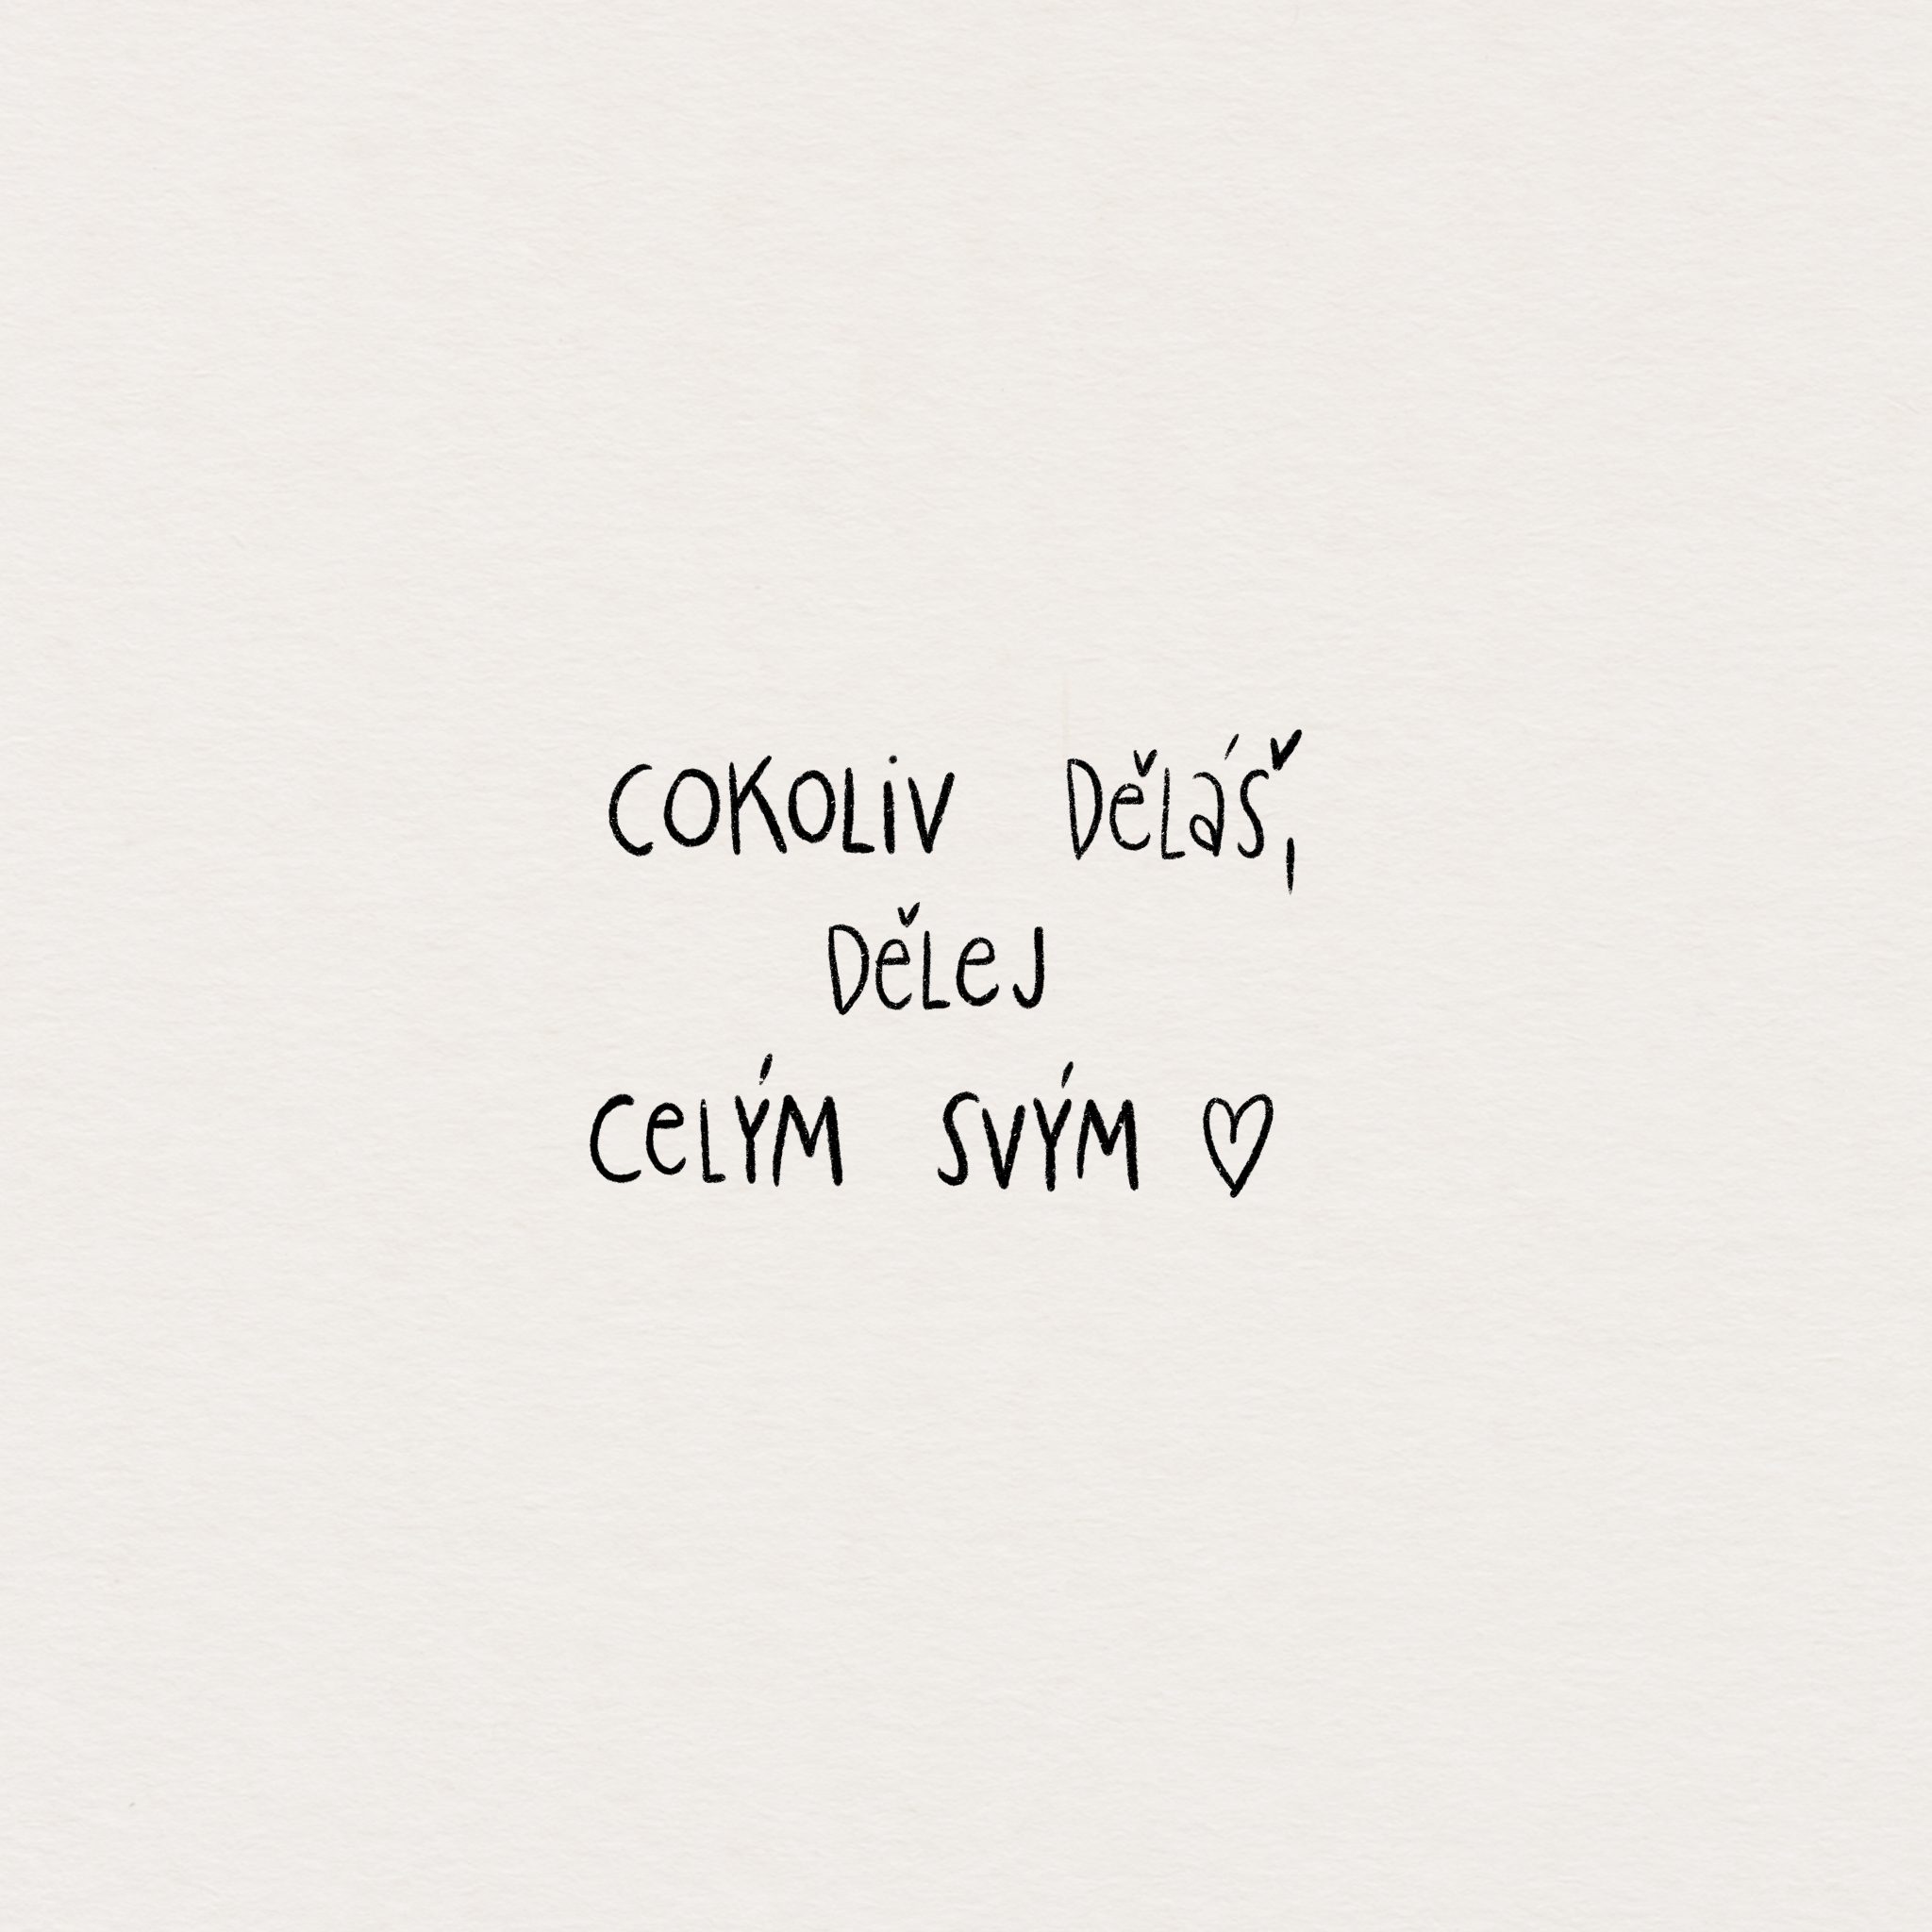 COKOLiV DěLáŠ,
DěLeJ
CeLÝM SVÝM ♡